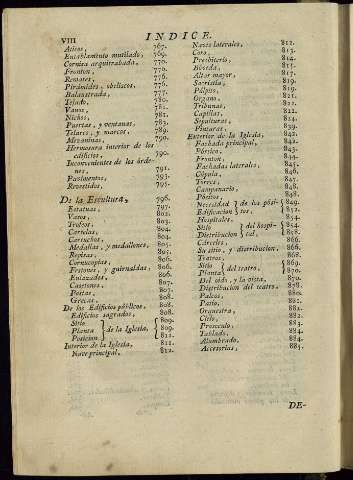 VIII
INDICE.
Aticos, 767.
Entablamento mutilado, 769.
Cornisa arquitrabada, 770.
Fronton, 770.
Remates, 776.
Pirámides, obeliscos, 776.
Balaustrada, 777.
Tejado,
Vanos,
Nichos,
Puertas, y ventanas, 783.
Telares, y marcos, 789.
Mezaninas, 790.
Hermosura interior de los
edificios, 790.
Inconvenientes de los órde-
nes, 791.
Pavimentos, 795.
Revestidos, 795.
De la Escultura, 796.
Estatuas, 797.
Vasos, 802.
Trofeos, 803.
Cartelas, 804.
Cartuchos, 804.
Medallas, y medallones, 805.
Repisas, 806.
Cornucopias, 806.
Festones, y guirnaldas, 806.
Enlazados, 806.
Casetones, 807.
Postas, 808.
Grecas, 808.
De los Edificios públicos, 808.
Edificios sagrados, 808.
Sitio 809.
Planta de la Iglesia, 809.
Posicion 811.
Interior de la Iglesia, 811.
Nave principal, 812.
Naves laterales, 812.
Coro, 813.
Presbiterio,
Bóveda,
Altar mayor,
Sacristía,
Púlpito,
Organo,
Tribunas,
Capillas,
Sepulturas,
Pinturas,
Exterior de la Iglesia, 842.
Fachada principal,
Pórtico,
Fronton,
Fachadas laterales,
Cúpula,
Torres,
Campanario, 848.
Pósitos, 849.
Necesidad de los pósi- 849.
Edificacion tos, 851.
Hospitales, 852.
Sitio del hospi- 854.
Distribucion tal, 858.
Cárceles, 866.
Su sitio, y distribucion, 866.
Teatros, 869.
Sitio del teatro, 870.
Planta 870.
Del oido, y la vista, 870.
Distribucion del teatro, 878.
Palcos, 880.
Patio, 881.
Orquestra, 882.
Cielo, 882.
Proscenio, 883.
Tablado, 883.
Alumbrado, 884.
Accesorias, 885.
DE-